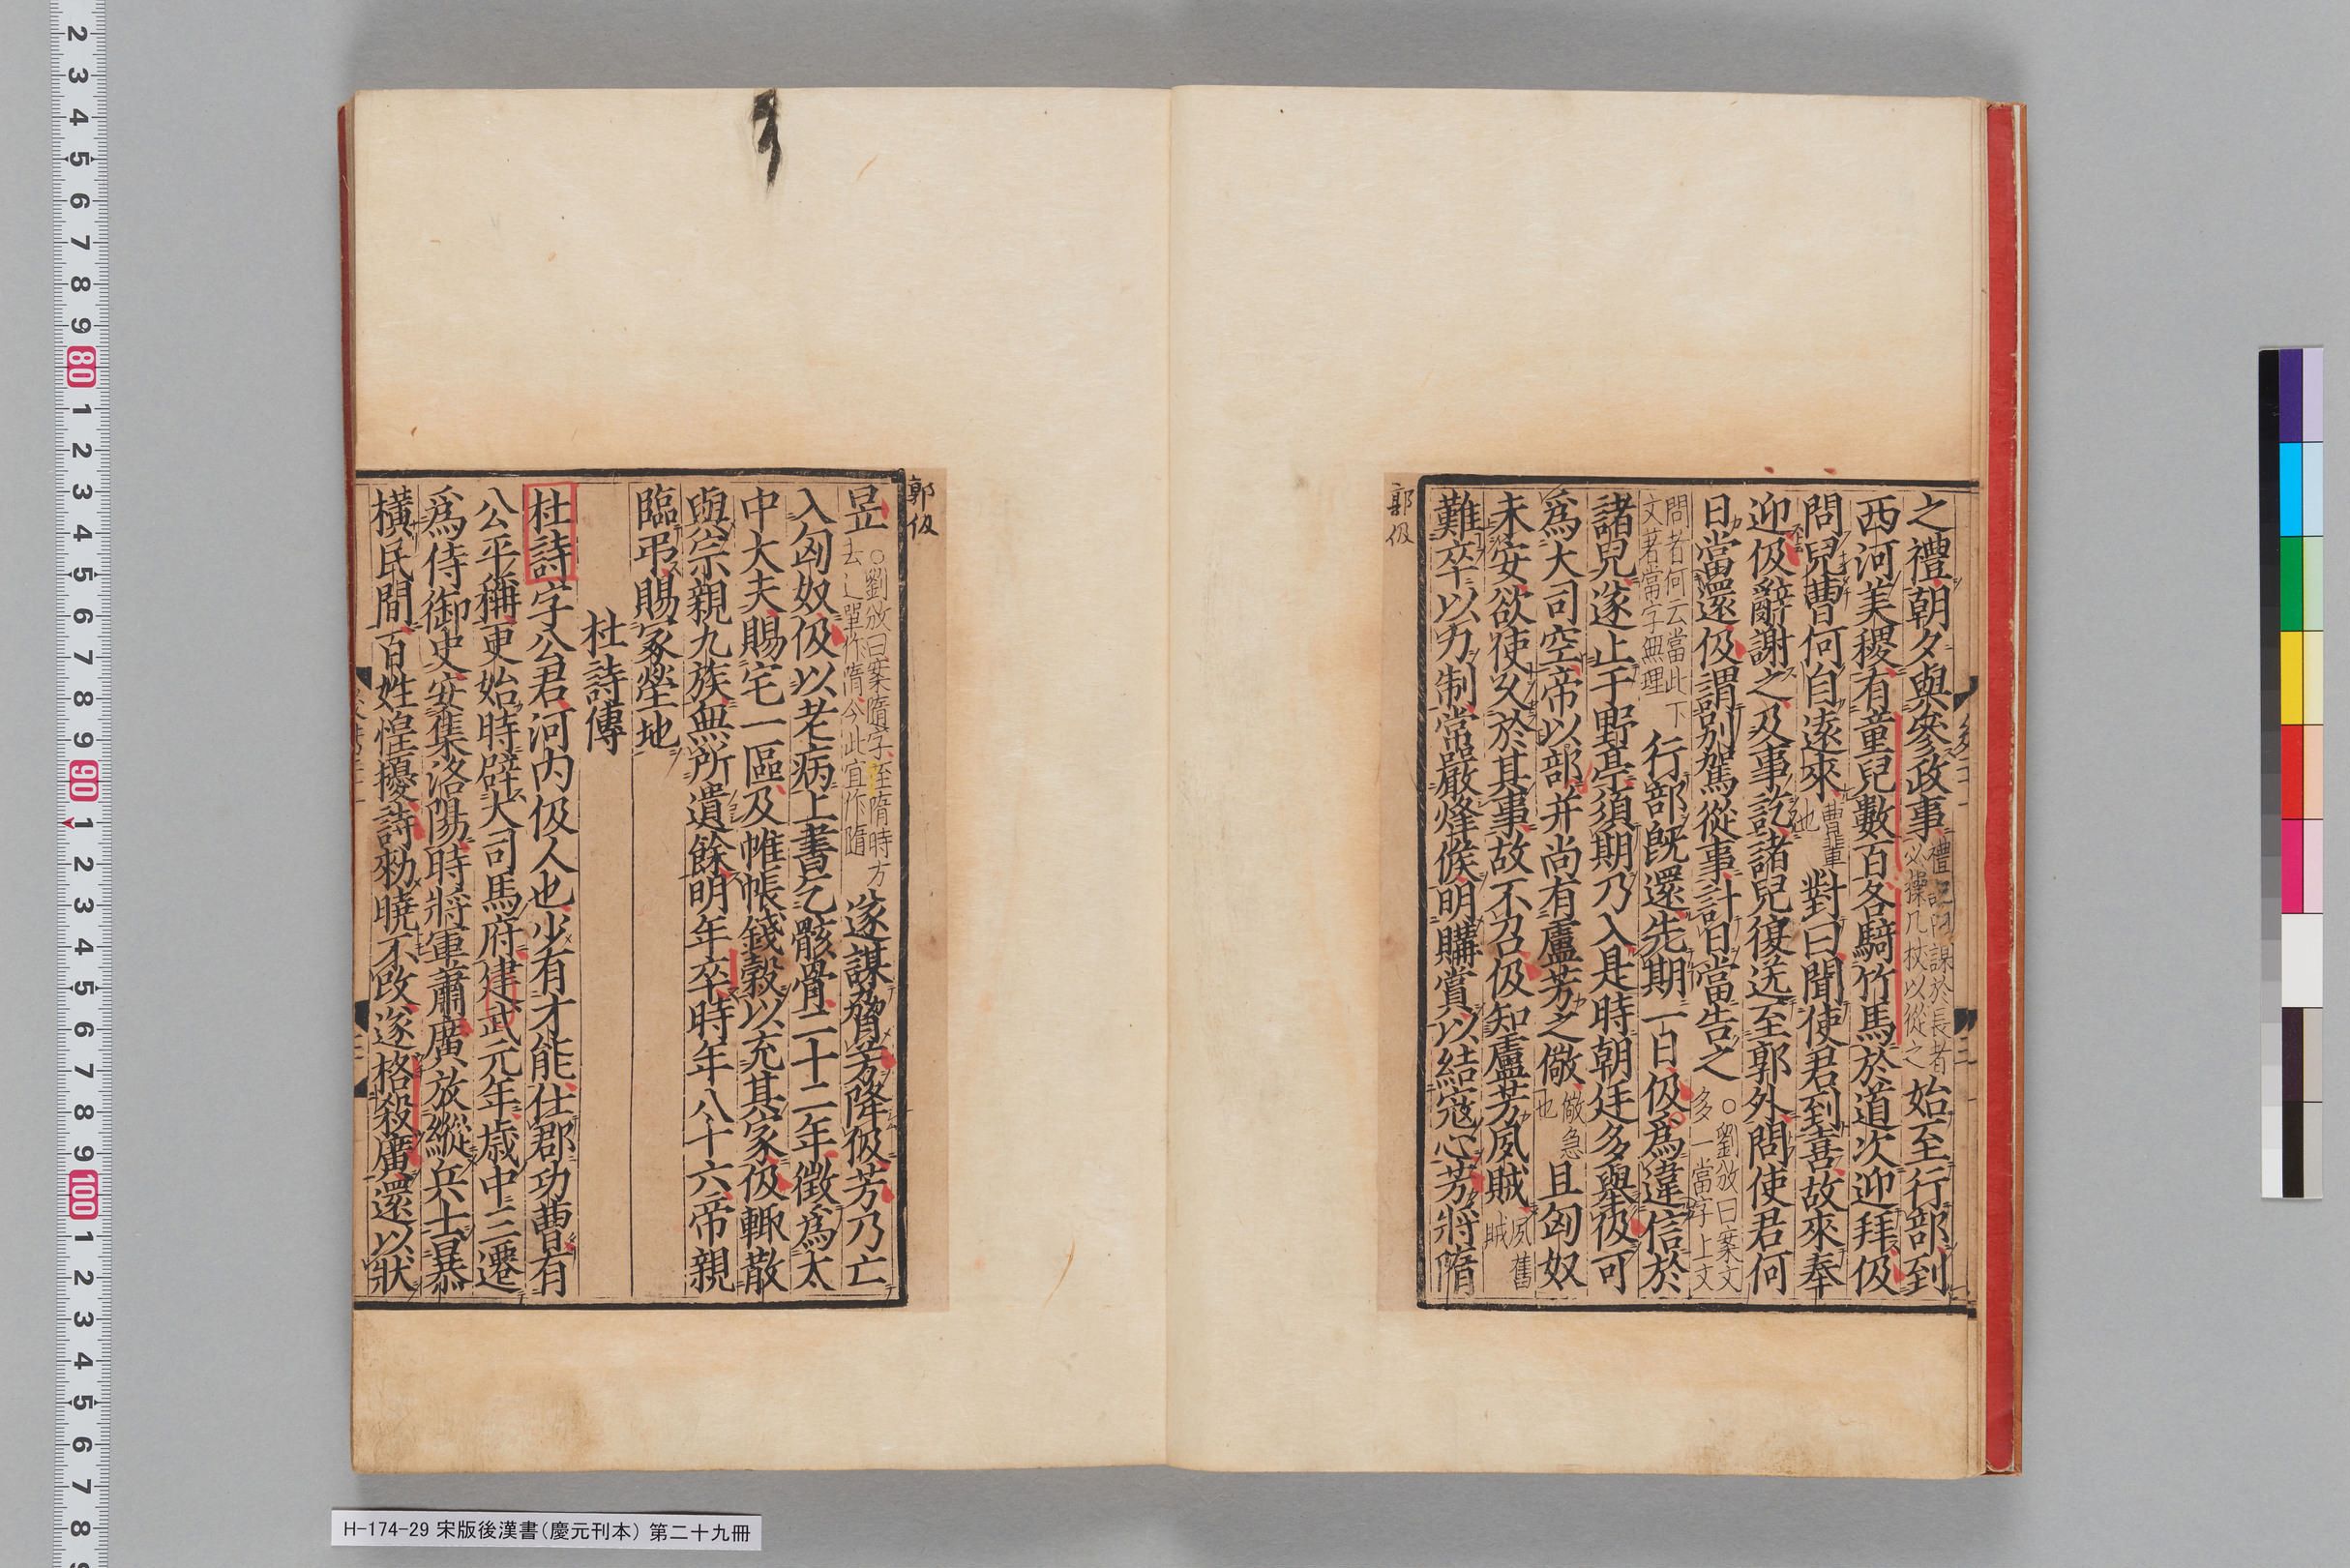 之禮朝夕與參政事禮記曰謀於長者必操几杖以從之始至行部到
西河美稷有童兒數百各騎竹馬於道次迎拜伋
問兒曹何自遠來曹輩也對曰聞使君到喜故來奉
迎伋辭謝之及事訖諸兒復送至郭外問使君何
日當還伋謂別駕從事計日當告之○劉攽曰案文多一當字上文
問者何云當此下文著當字無理行部既還先期一日伋爲違信於
諸兒遂止于野亭須期乃入是時朝廷多舉伋可
爲大司空帝以部并尚有盧芳之儆儆急也且匈奴
未安欲使久於其事故不召伋知盧芳夙賊夙舊賊
難卒以力制常嚴烽候明購賞以結寇心芳將隋
郭伋
郭伋
昱○劉攽曰案隋字至隋時方去辶單作隋今此宜作隨遂謀脅芳降伋芳乃亡
入匈奴伋以老病上書乞骸骨二十二年徵爲太
中大夫賜宅一區及帷帳錢穀以充其家伋輒散
與宗親九族無所遺餘明年卒時年八十六帝親
臨弔賜冢塋地
杜詩傳
杜詩字公君河内伋人也少有才能仕郡功曹有
公平稱更始時辟大司馬府建武元年歳中三遷
爲侍御史安集洛陽時將軍蕭廣放縱兵士暴
橫民間百姓惶擾詩勑曉不改遂格殺廣還以狀
H-174-29 宋版後漢書（慶元刊本） 第二十九冊
2 3 4 5 6 7 8 9 80 1 2 3 4 5 6 7 8 9 90 1 2 3 4 5 6 7 8 9 100 1 2 3 4 5 6 7 8